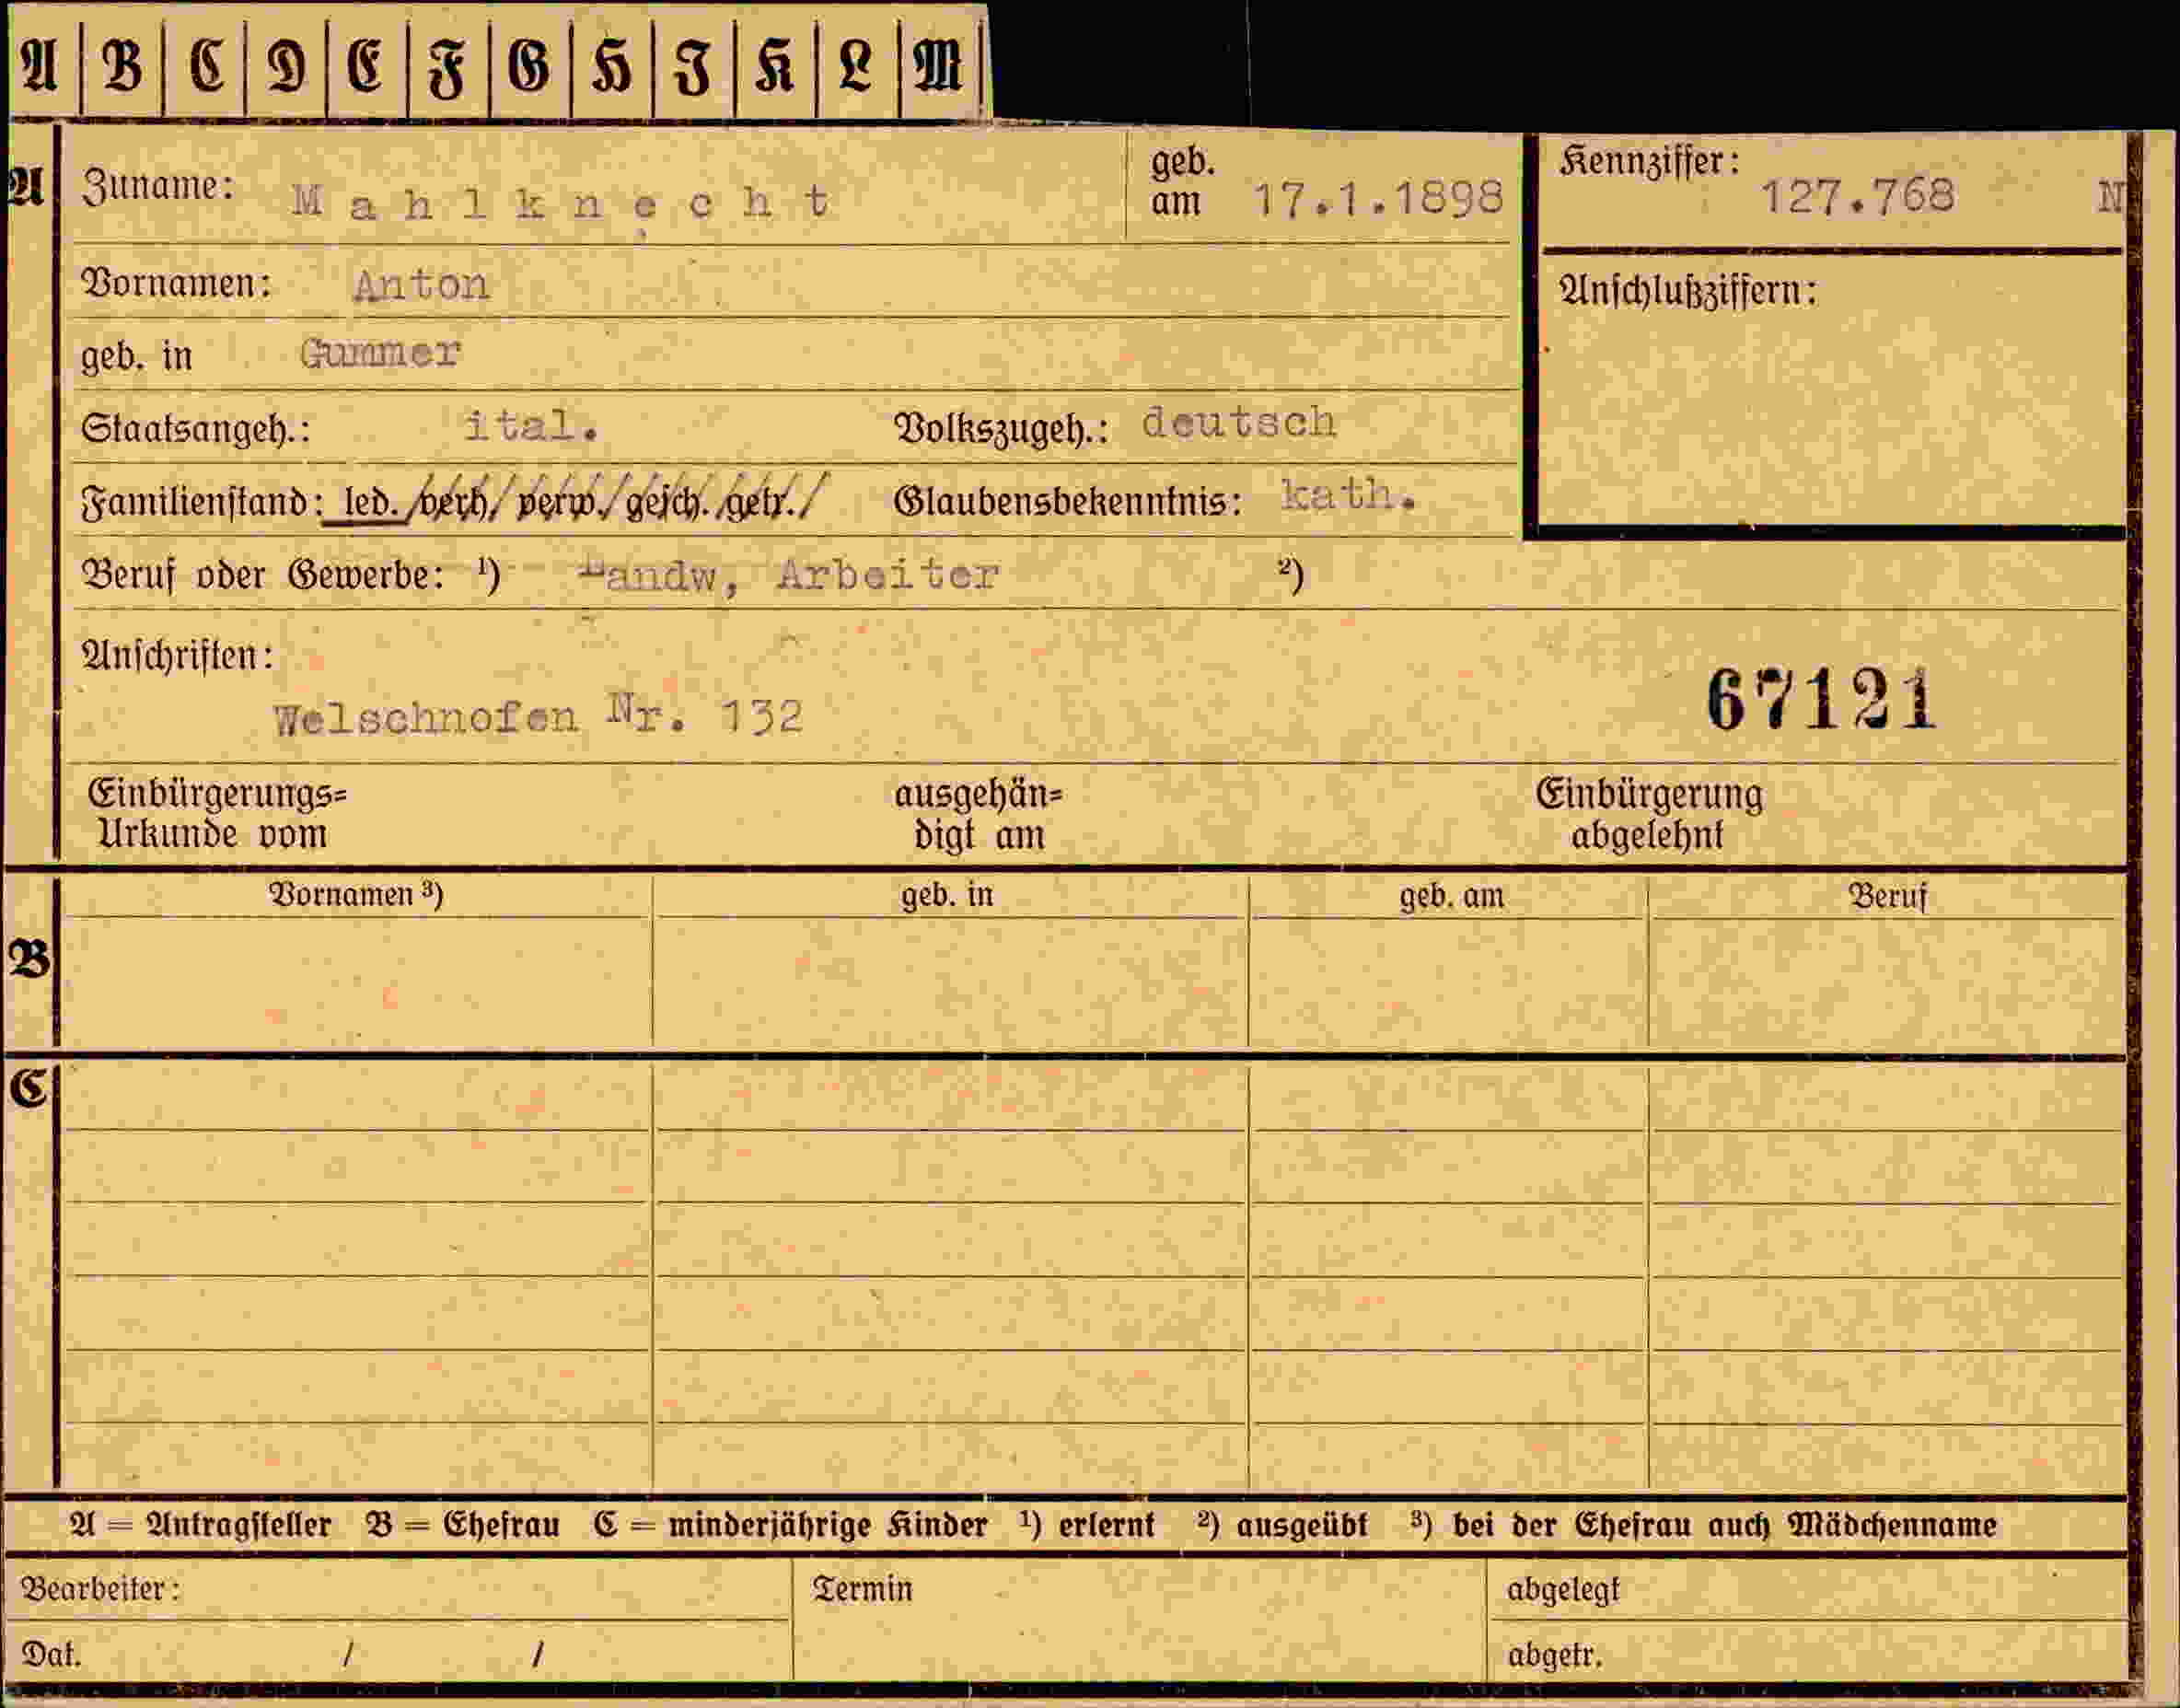 A B C D E F G H I K L M
A Zuname: Mahlknecht geb. am 17.1.1898 Kennziffer: 127.768 N
Vornamen: Anton Anschlußziffern:
geb. in Gummer
Staatsangeh.: ital. Volkszugeh.: deutsch
Familienstand: led. / verh / verw. / gesch. / getr. / Glaubensbekenntnis: kath.
Beruf oder Gewerbe: ¹) Landw, Arbeiter ²)
Anschriften:
Welschnofen Nr. 132 67121
Einbürgerungs= ausgehän= Einbürgerung
Urkunde vom digt am abgelehnt
B Vornamen ³) geb. in geb. am Beruf
C
A = Antragsteller B = Ehefrau C = minderjährige Kinder ¹) erlernt ²) ausgeübt ³) bei der Ehefrau auch Mädchenname
Bearbeiter: Termin abgelegt
Dat. / / abgetr.